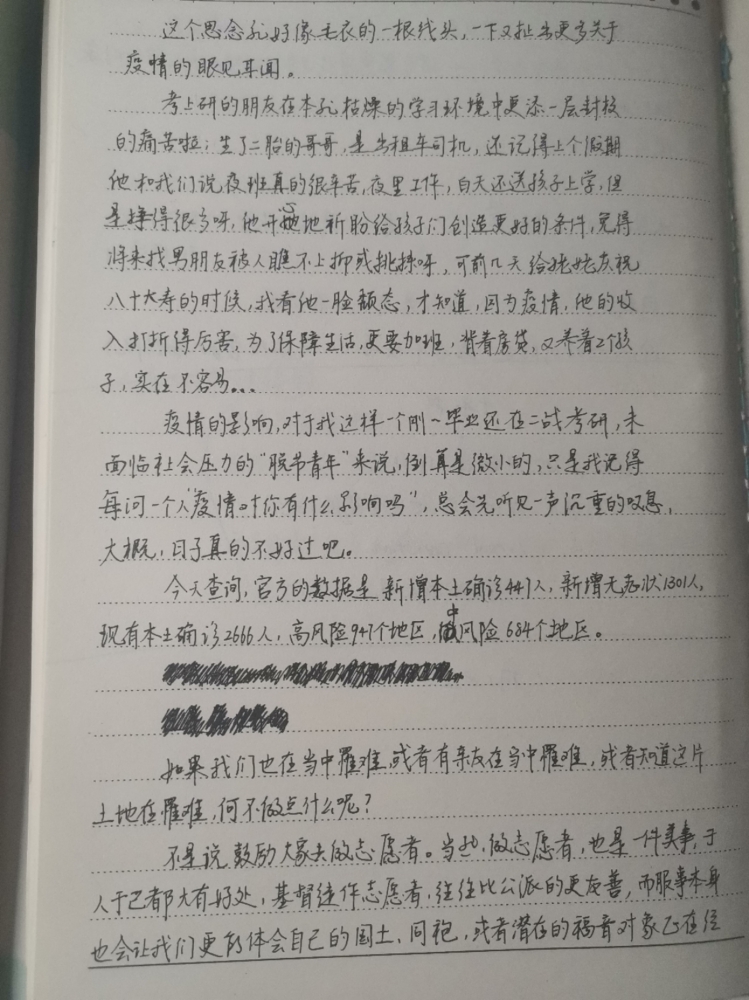 这个思念孔好像毛衣的一根线头，一下又扯出更多关于
疫情的眼见耳闻。
考上研的朋友在本就枯燥的学习环境中更添一层封校
的痛苦啦；生了二胎的哥哥，是出租车司机，还记得上个假期
他和我们说夜班真的很辛苦，夜里工作，白天还送孩子上学，但
是挣得很多呀，他开心地祈盼给孩子们创造更好的条件，免得
将来找男朋友被人瞧不上抑或挑拣呀，可前几天给姥姥庆祝
八十大寿的时候，我看他一脸颓态，才知道，因为疫情，他的收
入打折得厉害，为了保障生活，更要加班，背着房贷，又养着2个孩
子，实在不容易...
疫情的影响，对于我这样一个刚一毕业还在二战考研，未
面临社会压力的“脱节青年”来说，倒算是微小的，只是我记得
每问一个人“疫情对你有什么影响吗”，总会先听见一声沉重的叹息，
大概，日子真的不好过吧。
今天查询，官方的数据是新增本土确诊447人，新增无症状1301人，
现有本土确诊2666人，高风险947个地区，中风险684个地区。
如果我们也在当中罹难，或者有亲友在当中罹难，或者知道这片
土地在罹难，何不做点什么呢？
不是说鼓励大家去做志愿者。当然，做志愿者，也是一件美事，于
人于己都大有好处，基督徒作志愿者，往往比公派的更友善，而服事本身
也会让我们更能体会自己的国土、同袍，或者潜在的福音对象正在经